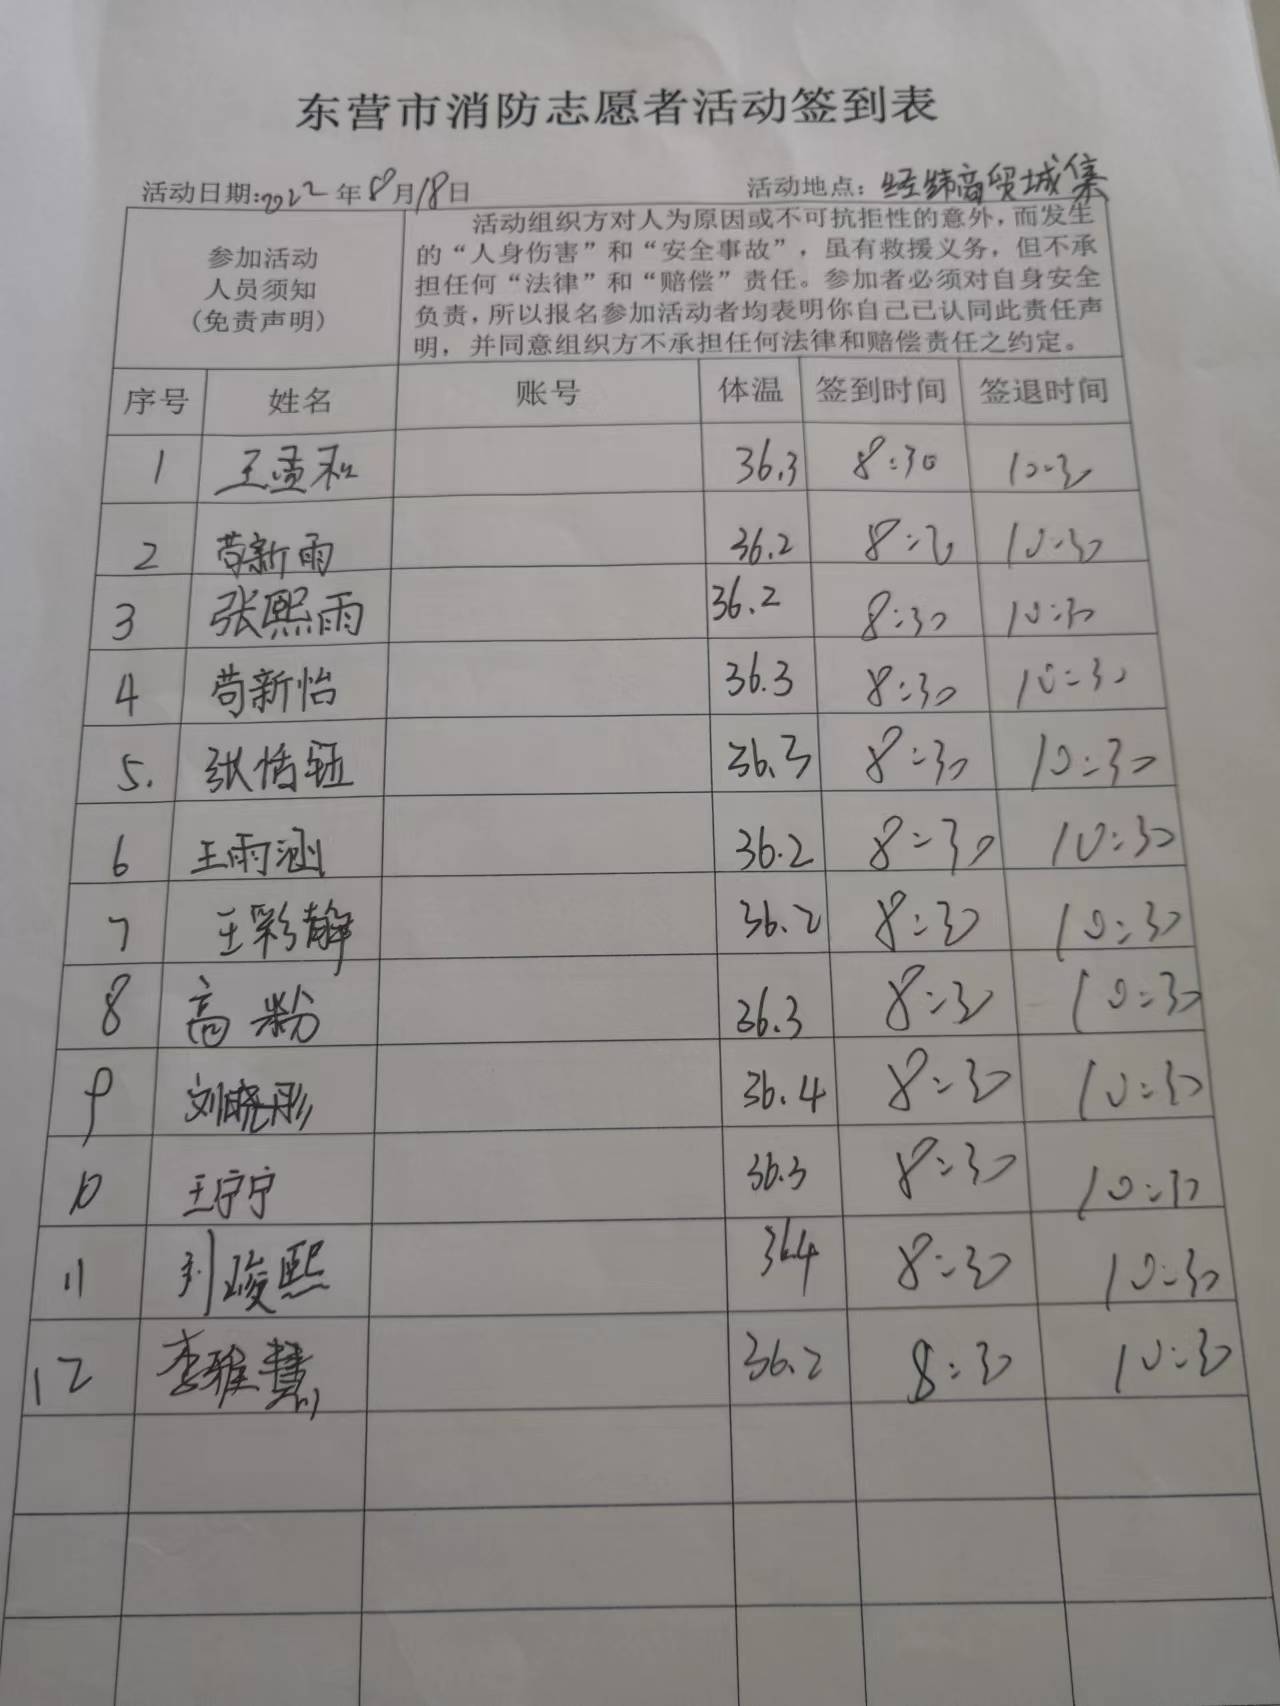 东营市消防志愿者活动签到表
活动日期:2022年8月18日 活动地点：经纬商贸城集
参加活动
人员须知
(免责声明)
活动组织方对人为原因或不可抗拒性的意外，而发生
的“人身伤害”和“安全事故”，虽有救援义务，但不承
担任何“法律”和“赔偿”责任。参加者必须对自身安全
负责，所以报名参加活动者均表明你自己已认同此责任声
明，并同意组织方不承担任何法律和赔偿责任之约定。
序号 姓名 账号 体温 签到时间 签退时间
1 王孟和 36.3 8:30 10:30
2 苟新雨 36.2 8:30 10:30
3 张熙雨 36.2 8:30 10:30
4 苟新怡 36.3 8:30 10:30
5. 张恬钰 36.3 8:30 10:30
6 王雨涵 36.2 8:30 10:30
7 王彩静 36.2 8:30 10:30
8 高粉 36.3 8:30 10:30
9 刘晓彤 36.4 8:30 10:30
10 王宁宁 36.3 8:30 10:30
11 刘峻熙 36.4 8:30 10:30
12 李雅慧 36.2 8:30 10:30